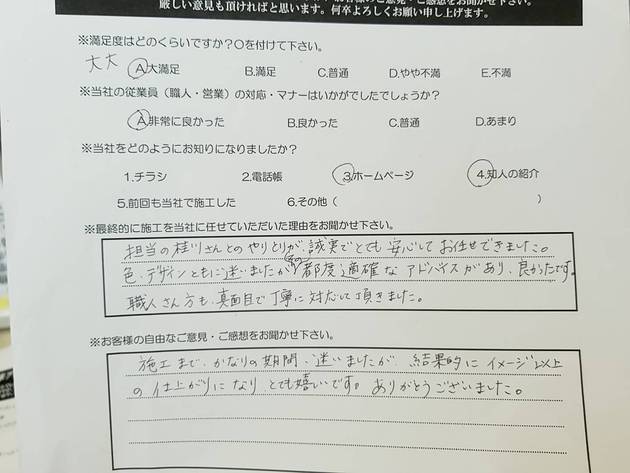 厳しい意見も頂ければと思います。何卒よろしくお願い申し上げます。
※満足度はどのくらいですか?〇を付けて下さい。
大大 A.大満足 B.満足 C.普通 D.やや不満 E.不満
※当社の従業員(職人・営業)の対応・マナーはいかがでしたでしょうか?
A.非常に良かった B.良かった C.普通 D.あまり
※当社をどのようにお知りになりましたか?
1.チラシ 2.電話帳 3.ホームページ 4.知人の紹介
5.前回も当社で施工した 6.その他( )
※最終的に施工を当社に任せていただいた理由をお聞かせ下さい。
担当の桂川さんとのやりとりが、誠実でとても安心してお任せできました。
色・デザインともに迷いましたが、その都度適確なアドバイスがあり、良かったです。
職人さん方も、真面目で丁寧に対応して頂きました。
※お客様の自由なご意見・ご感想をお聞かせ下さい。
施工まで、かなりの期間、迷いましたが、結果的にイメージ以上
の仕上がりになり、とても嬉しいです。ありがとうございました。